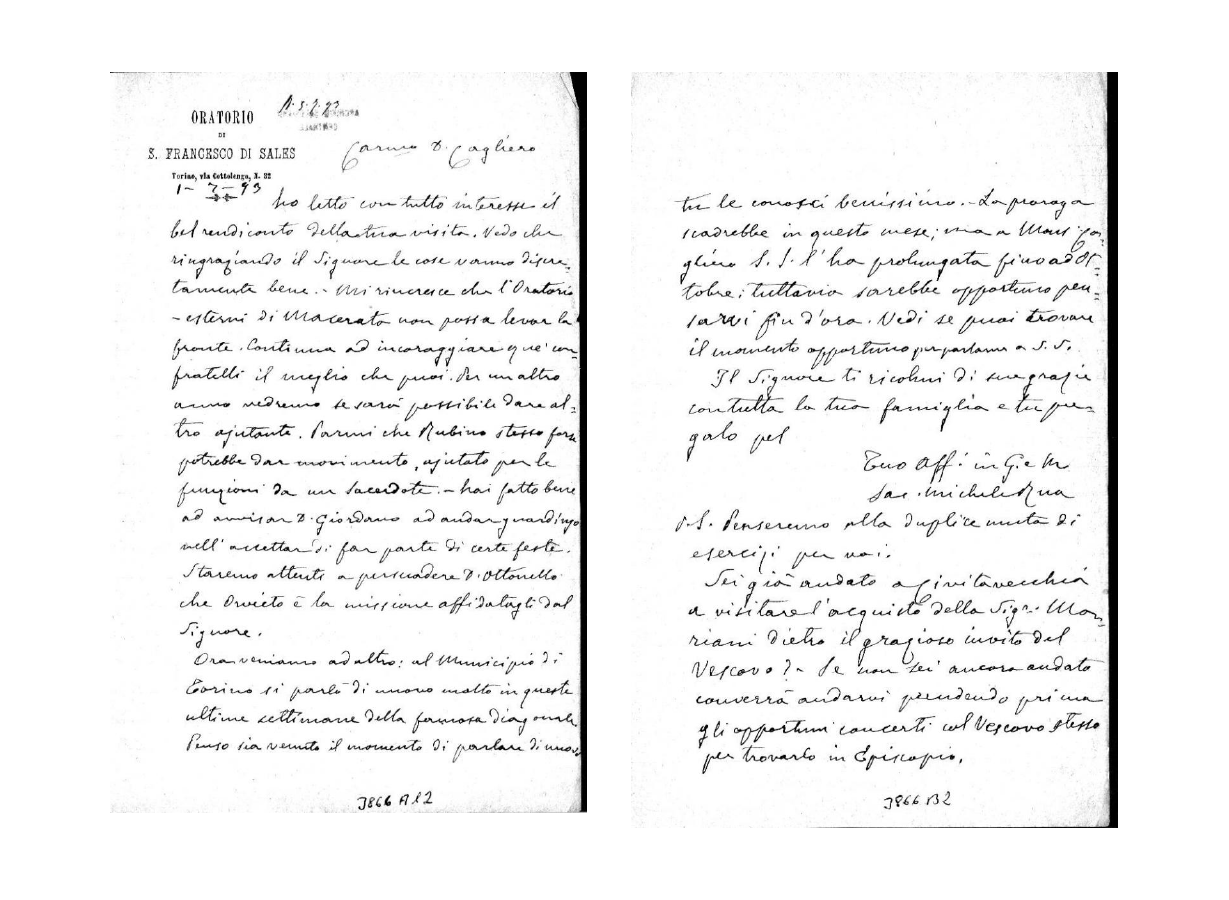 ORATORIO
DI
S. FRANCESCO DI SALES
Torino, via Cottolengo, N. 32
1-7-93
Carmo D. Cagliero
ho letto con tutto interesse il
bel rendiconto della tua visita. Vedo che
ringraziando il Signore le cose vanno discre=
tamente bene. - Mi rincresce che l'Oratorio
- esterni di Macerata non possa levar la
fronte. Continua ad incoraggiare que' con
fratelli il meglio che puoi. Per un altro
anno vedremo se sarà possibile dare al=
tro ajutante. Parmi che Rubino stesso forse
potrebbe dar movimento, ajutato per le
funzioni da un Sacerdote. - hai fatto bene
ad avvisar D. Giordano ad andar guardingo
nell'accettar di far parte di certe feste.
Staremo attenti a persuadere D. Ottonello
che Orvieto è la missione affidatagli dal
Signore.
Ora veniamo ad altro: al Municipio di
Torino si parlò di nuovo molto in queste
ultime settimane della famosa diagonale
Penso sia venuto il momento di parlare di nuovo
J866 A12
tu le conosci benissimo. - La proroga
scadrebbe in questo mese; ma a Mons. Ca=
gliero S. S. l'ha prolungata fino ad Ot=
tobre; tuttavia sarebbe opportuno pen=
sarvi fin d'ora. Vedi se puoi trovare
il momento opportuno per parlarne a S. S.
Il Signore ti ricolmi di sue grazie
con tutta la tua famiglia e tu pre=
galo pel
Tuo Aff. in G. e M
Sac. Michele Rua
P.S. Penseremo alla duplice muta di
esercizi per voi.
Sei già andato a Civitavecchia
a visitare l'acquisto della Sigra. Mon=
riani dietro il grazioso invito del
Vescovo? - Se non sei ancora andato
converrà andarvi prendendo prima
gli opportuni concerti col Vescovo stesso
per trovarlo in Episcopio.
3866 B2